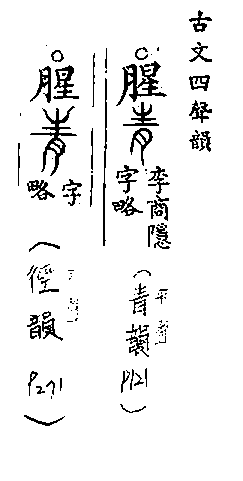 古文四聲韻
腥
李商隱
字略
(青韻 P121)
腥
字
略
(徑韻 P271)